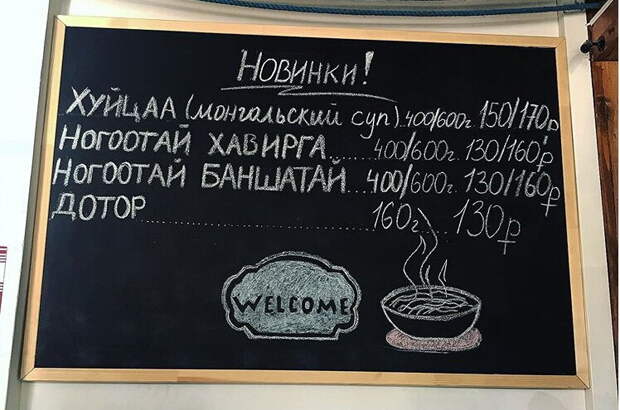 Новинки!
Хуйцаа (монгольский суп).400/600г.150/170р
Ногоотай хавирга....400/600г.130/160р
Ногоотай баншатай...400/600г..130/160р
Дотор..................160г....130р
WELCOME